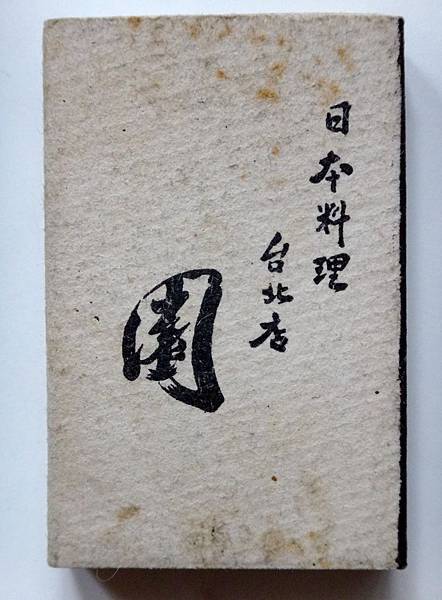 日本料理
台北店
園